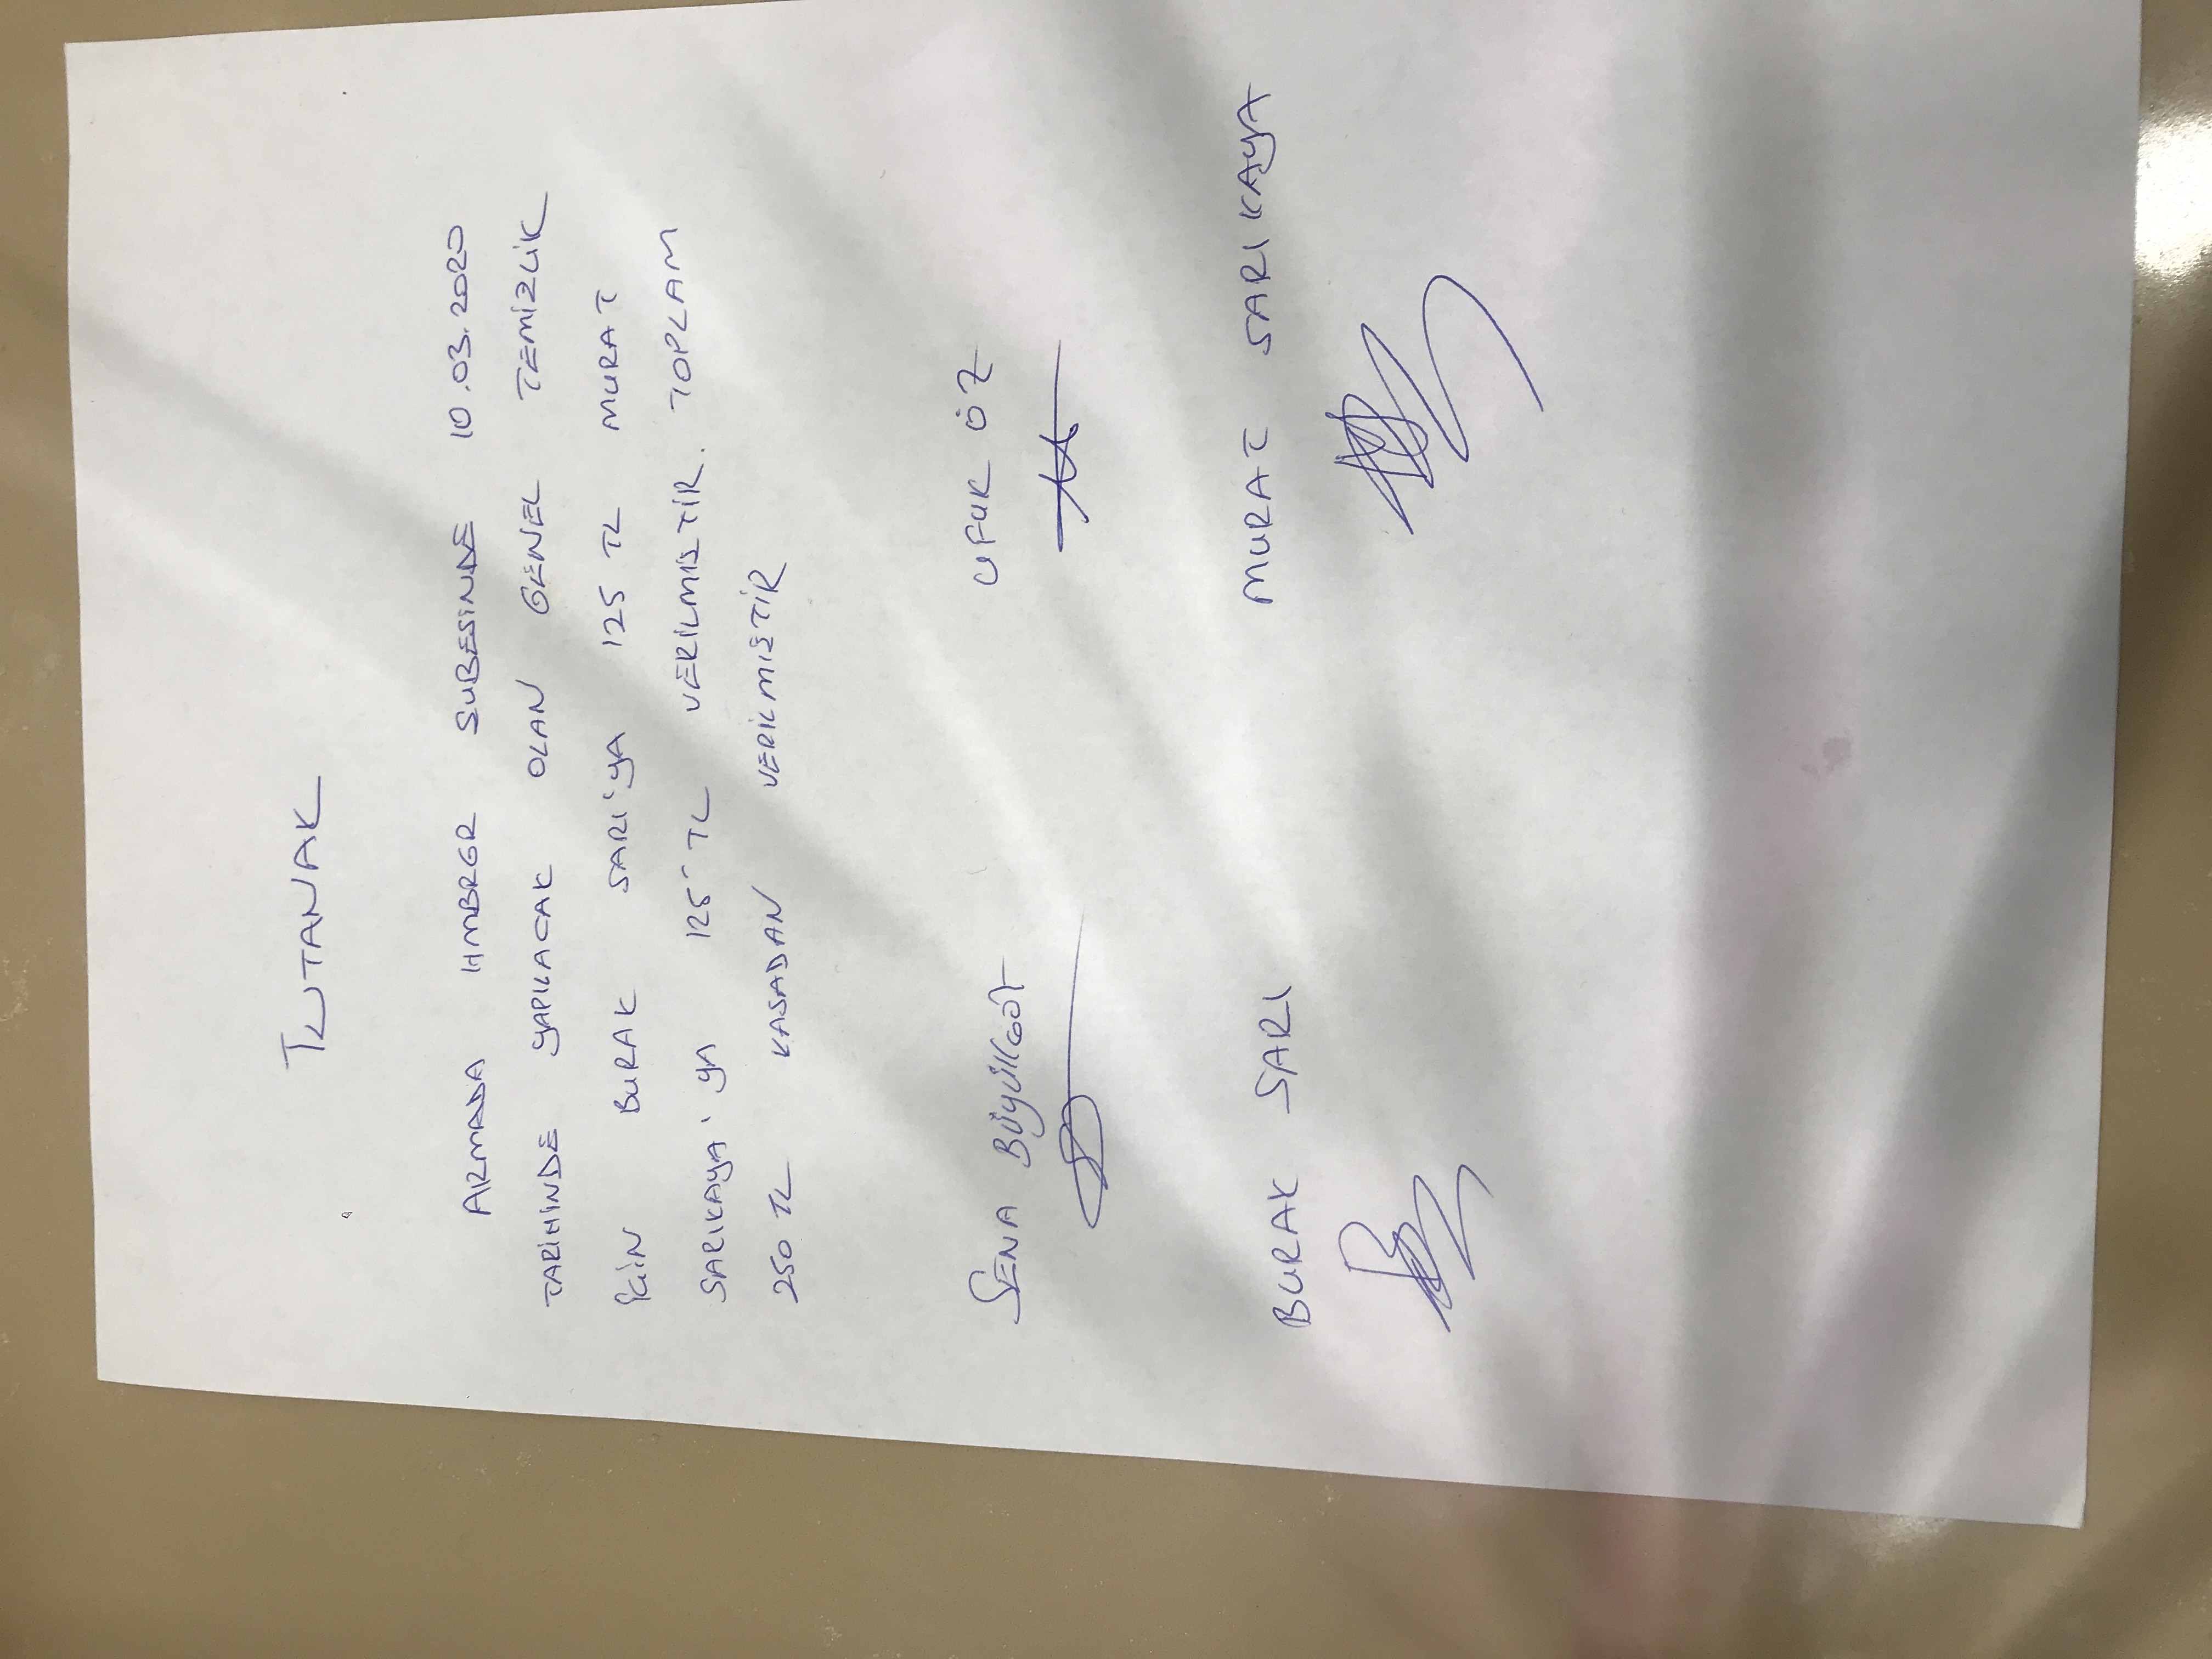 TUTANAK
ARMADA HMBRGR ŞUBESİNDE 10.03.2020
TARİHİNDE YAPILACAK OLAN GENEL TEMİZLİK
İÇİN BURAK SARI'YA 125 TL MURAT
SARIKAYA'YA 125 TL VERİLMİŞTİR. TOPLAM
250 TL KASADAN VERİLMİŞTİR
SENA UFUK ÖZ
BURAK SARI MURAT SARIKAYA